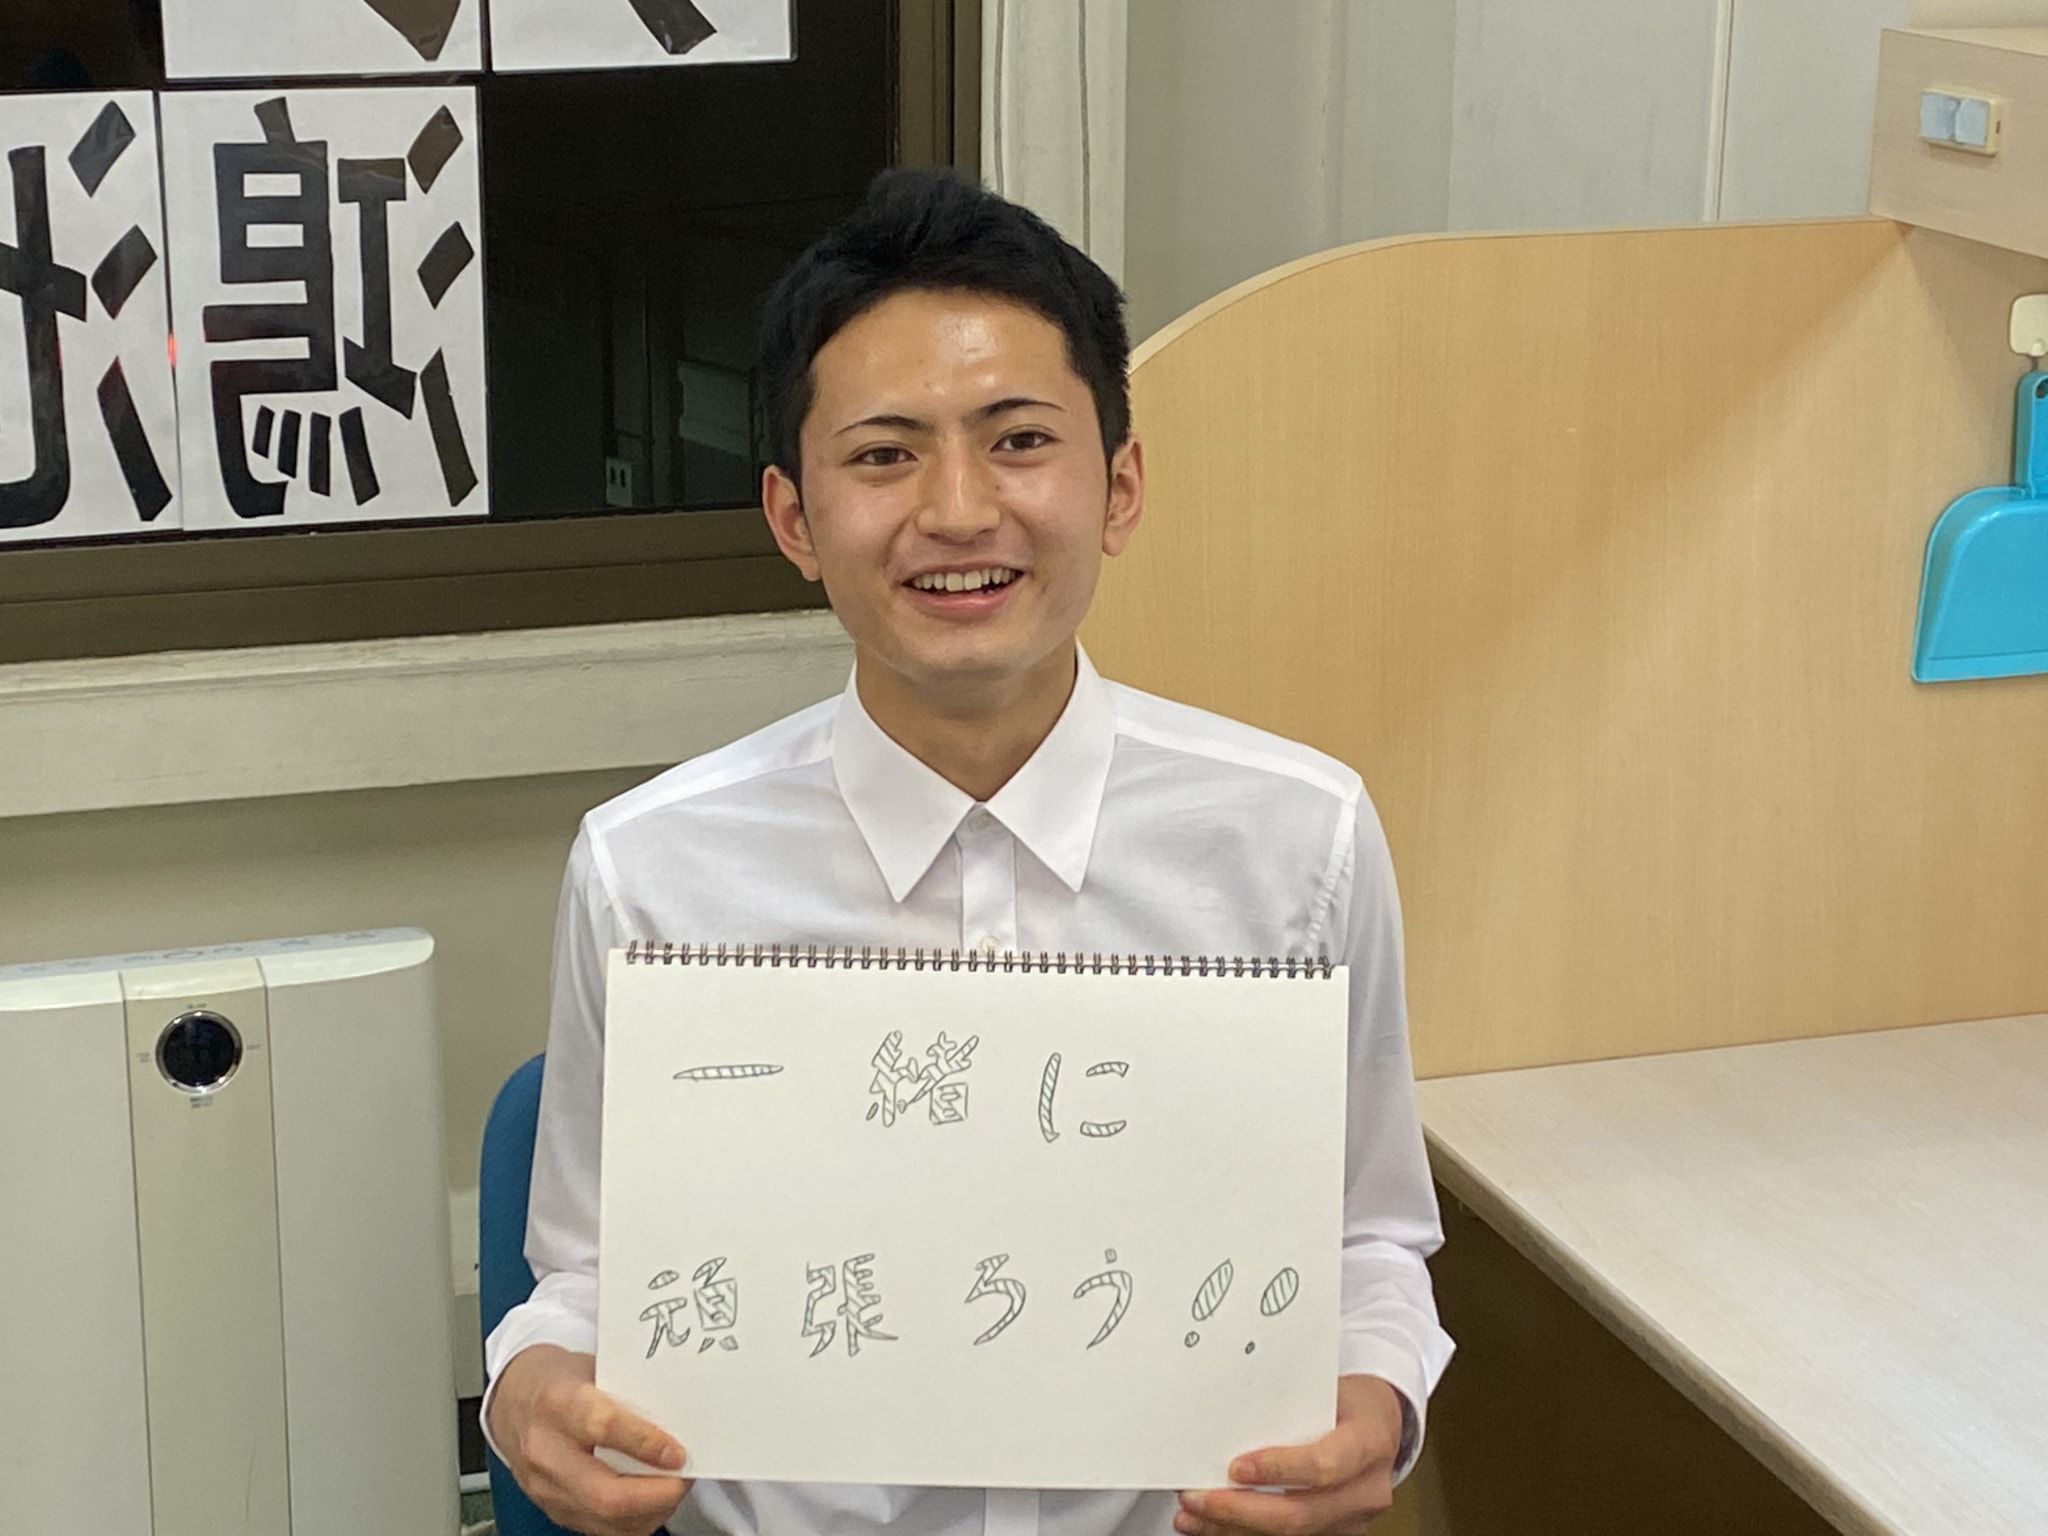 鴻
一緒に
頑張ろう!!